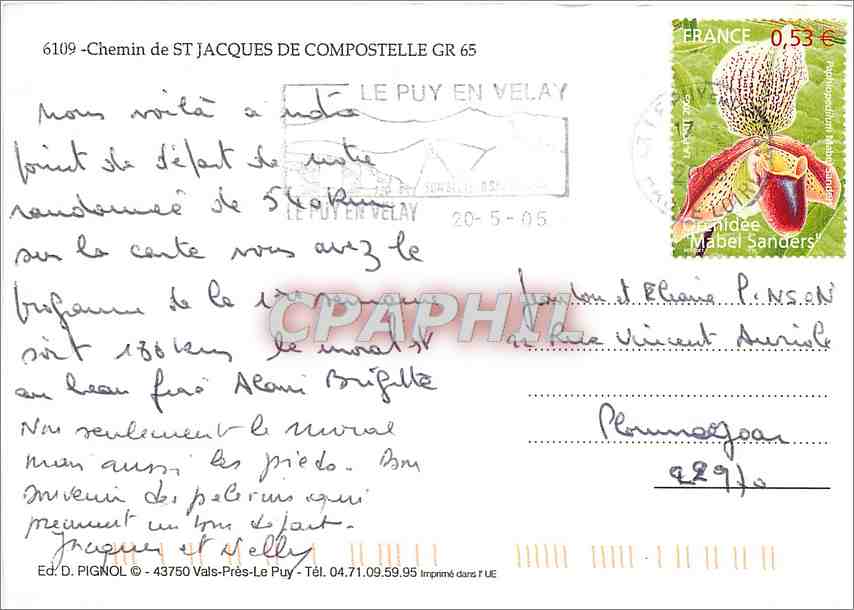 6109 -Chemin de ST JACQUES DE COMPOSTELLE GR 65
FRANCE 0,53 €
Paphiopedilum Mabel Sanders
LA POSTE
Orchidée
"Mabel Sanders"
LE PUY EN VELAY
LE PUY EN VELAY
20-5-05
HAUTE LOIRE
17
Nous voilà à notre
point de départ de notre
randonneé de 540 km
sur la carte vous avez le
programme de la 1ère semaine
soit 186 kms le moral est
au beau fixe Alain Brigitte
Non seulement le moral
mais aussi les pieds. Bon
souvenir des pelerins qui
prennent un bon départ.
Jacques et Nelly
et Eliane PINSON
Rue Vincent Auriole
Ploumagoar
22970
CPAPHIL
Ed. D. PIGNOL © - 43750 Vals-Près-Le Puy - Tél. 04.71.09.59.95 Imprimé dans l' UE